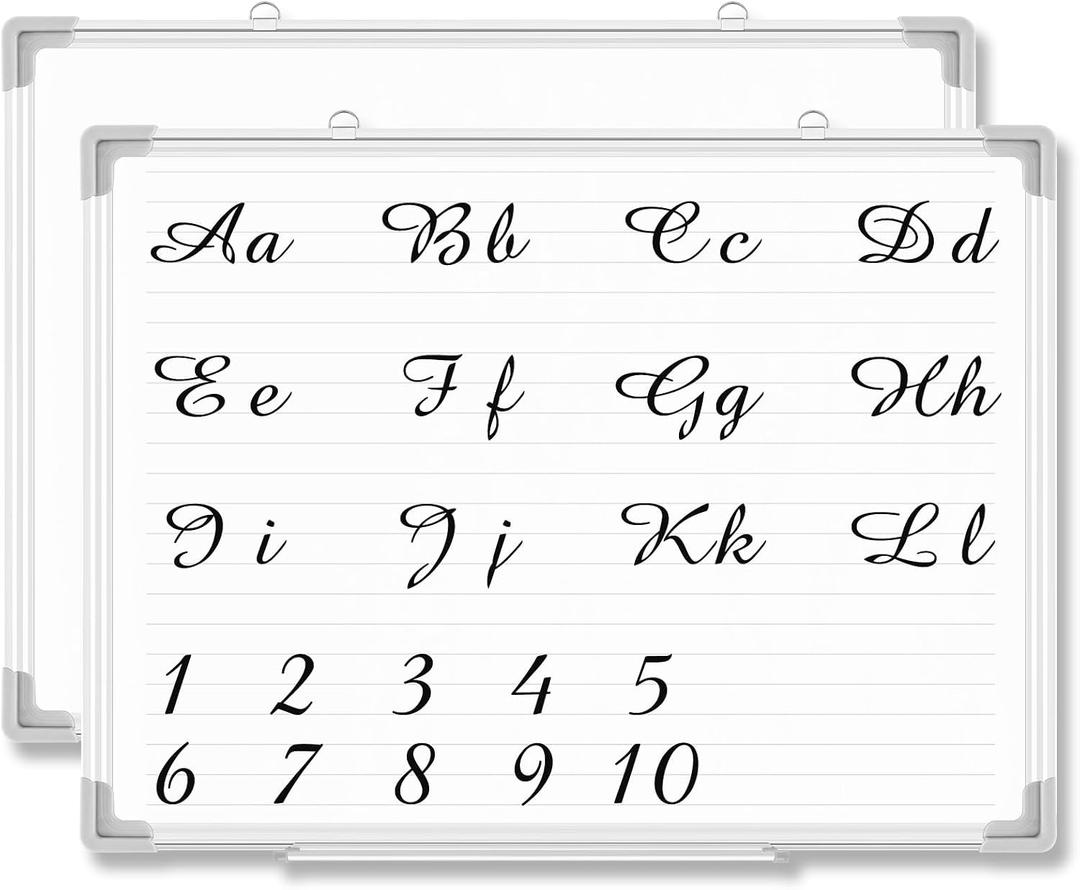 Aa Bb Cc Dd
Ee Ff Gg Hh
Ii Jj Kk Ll
1 2 3 4 5
6 7 8 9 10